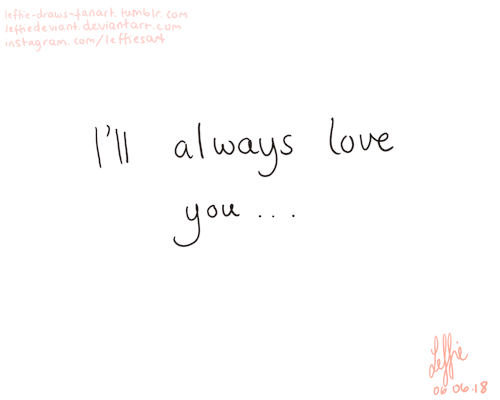 leffie-draws-fanart.tumblr.com
leffiedeviant.deviantart.com
instagram.com/leffiesart
I'll always love
you...
Leffie
06.06.18